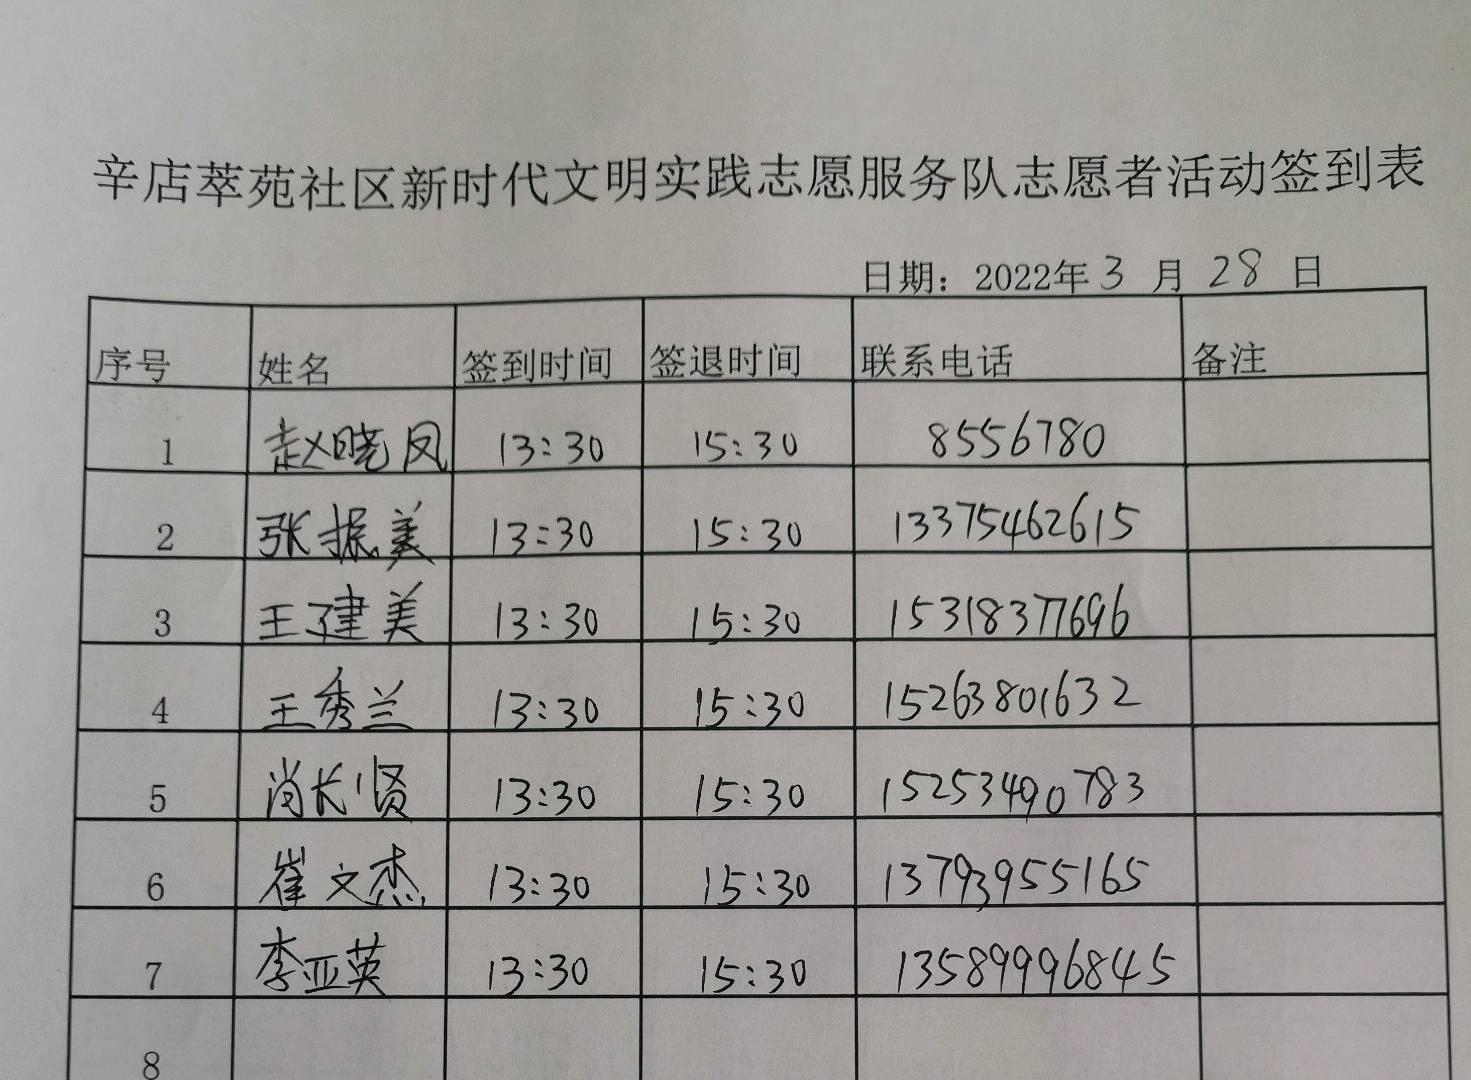 辛店萃苑社区新时代文明实践志愿服务队志愿者活动签到表
日期：2022年 3 月 28 日
序号 姓名 签到时间 签退时间 联系电话 备注
1 赵晓凤 13:30 15:30 8556780
2 张振美 13:30 15:30 13375462615
3 王建美 13:30 15:30 15318377696
4 王秀兰 13:30 15:30 15263801632
5 尚长贤 13:30 15:30 15253490783
6 崔文杰 13:30 15:30 13793955165
7 李亚英 13:30 15:30 13589996845
8